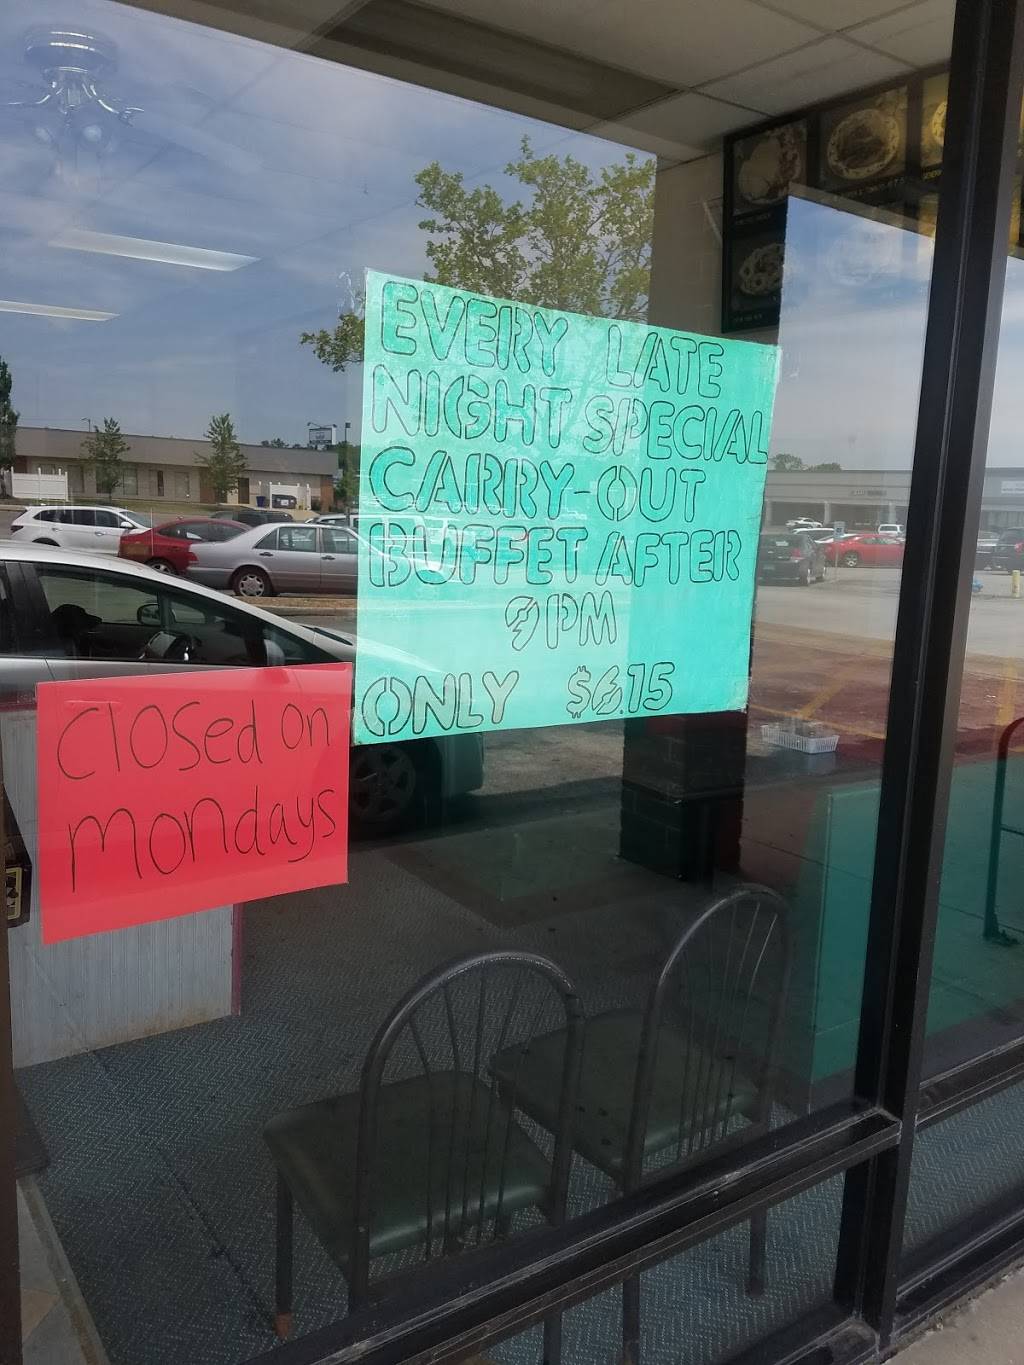 EVERY LATE
NIGHT SPECIAL
CARRY-OUT
BUFFET AFTER
9 PM
ONLY $6.15
Closed on
mondays